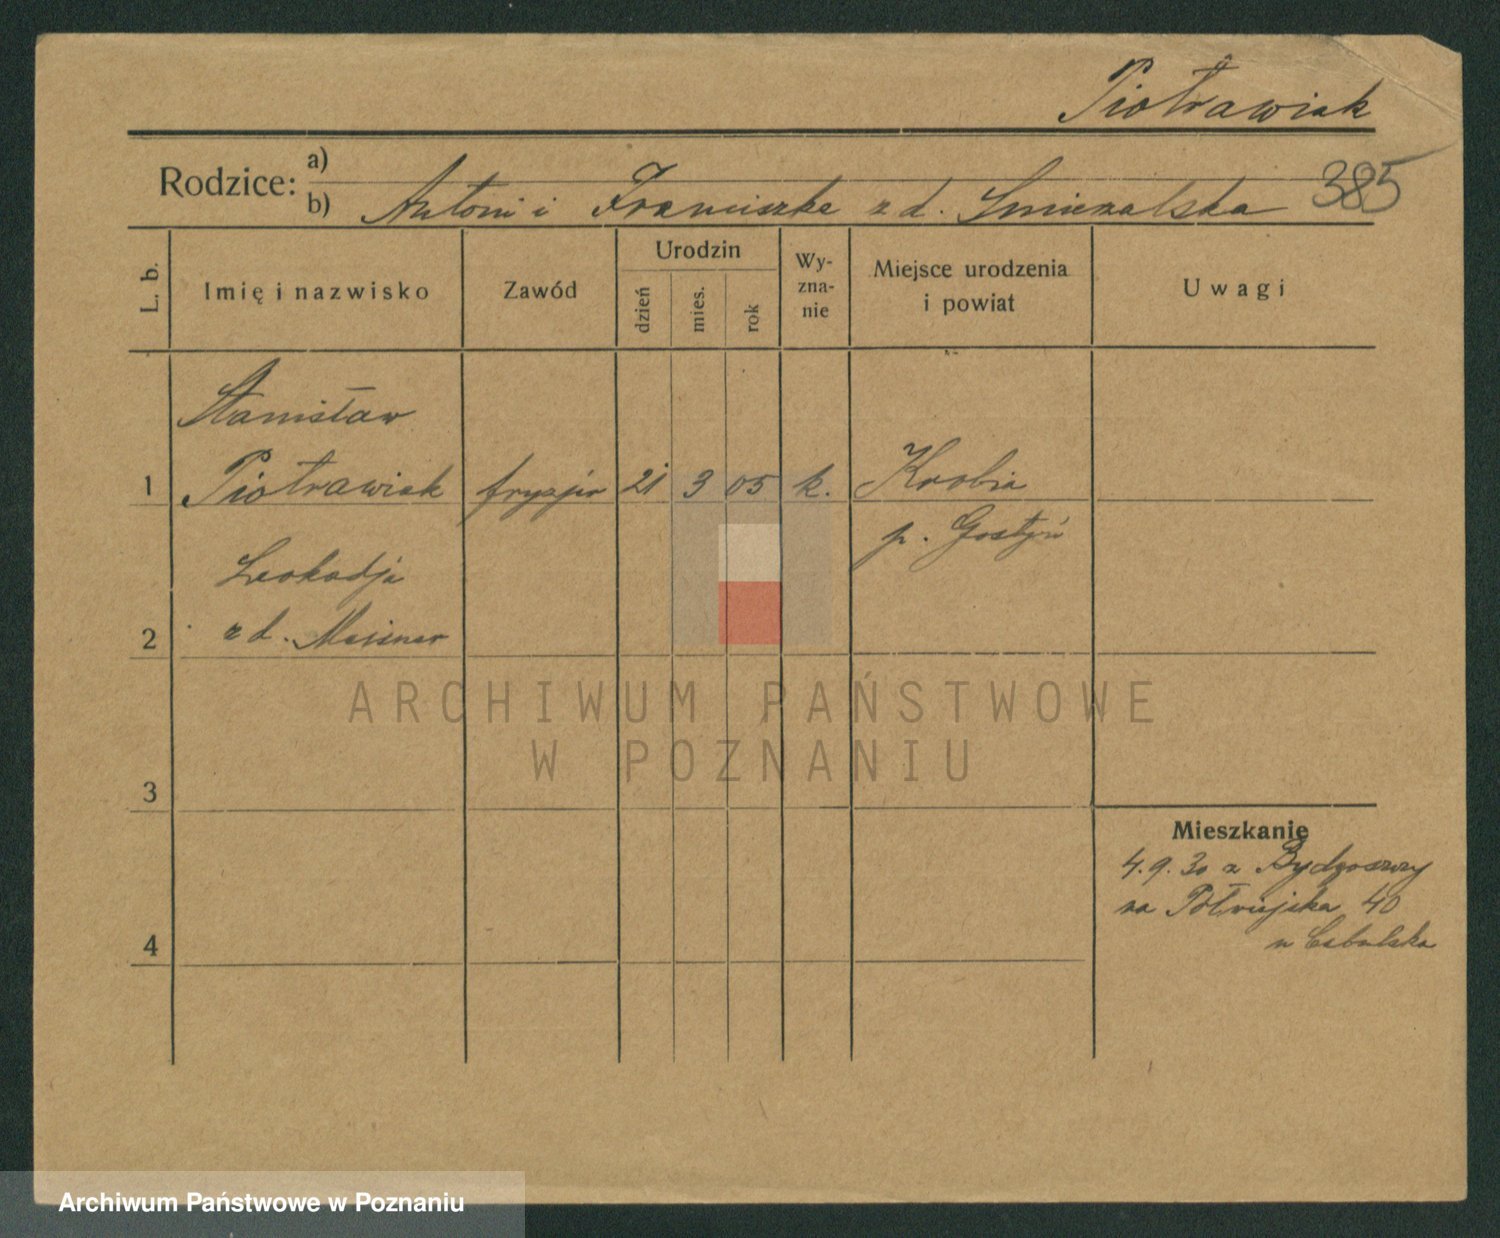 Piotrawiak
Rodzice: a)
b) Antoni i Franciszka z d. 385
L. b. Imię i nazwisko Zawód Urodzin dzień mies. rok Wy-zna-nie Miejsce urodzenia i powiat Uwagi
Stanisław
1 Piotrawiak fryzjer 21 3 05 k. Krobia
p. Gostyń
Leokadja
2 z d.
ARCHIWUM PAŃSTWOWE
W POZNANIU
3
Mieszkanie
4.9.30 z Bydgoszczy
na Półwiejska 40
4
Archiwum Państwowe w Poznaniu